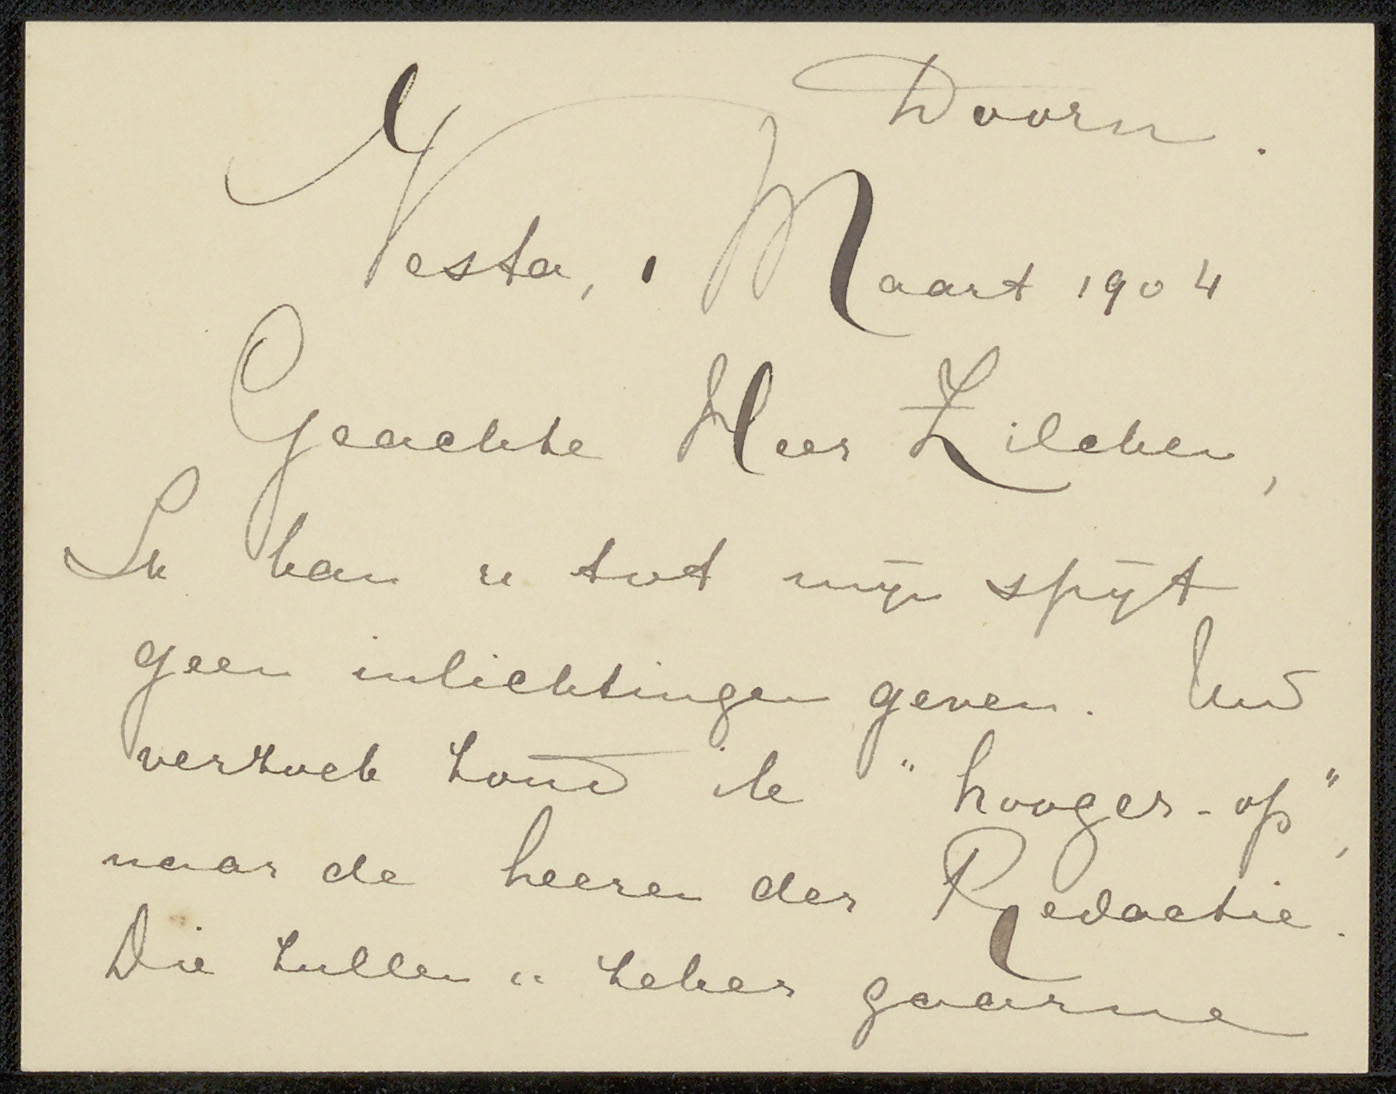 Doorn.
Vesta, 1 Maart 1904
Geachte Heer Zilcken,
Ik kan u tot mijn spijt
geen inlichtingen geven. Uw
verzoek zond ik "hooger-op",
naar de heeren der Redactie.
Die zullen u zeker gaarne